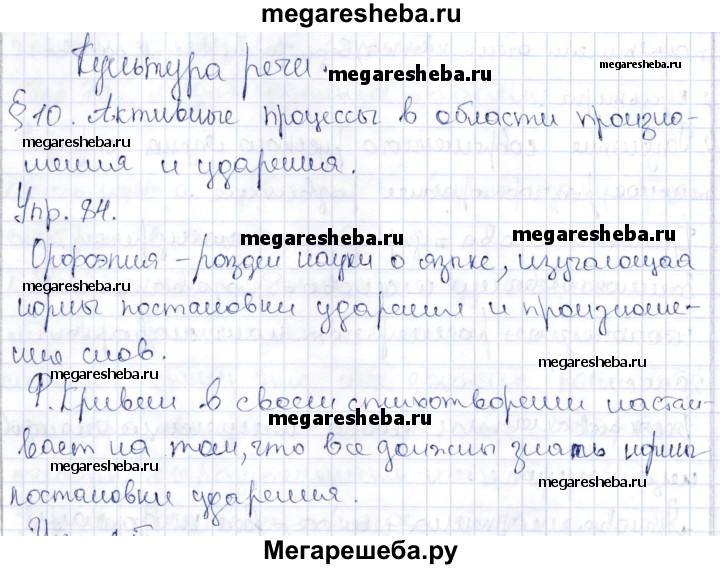 megaresheba.ru
Культура речи.
megaresheba.ru
megaresheba.ru
§ 10. Активные процессы в области произно-
megaresheba.ru
шения и ударения.
megaresheba.ru
Упр. 84.
megaresheba.ru
megaresheba.ru
Орфоэпия – раздел науки о языке, изучающая
megaresheba.ru
нормы постановки ударения и произноше-
ние слов.
megaresheba.ru
megaresheba.ru
Ф. Кривин в своем стихотворении настаи-
megaresheba.ru
вает на том, что все должны знать нормы
megaresheba.ru
megaresheba.ru
постановки ударения.
Мегарешеба.ру